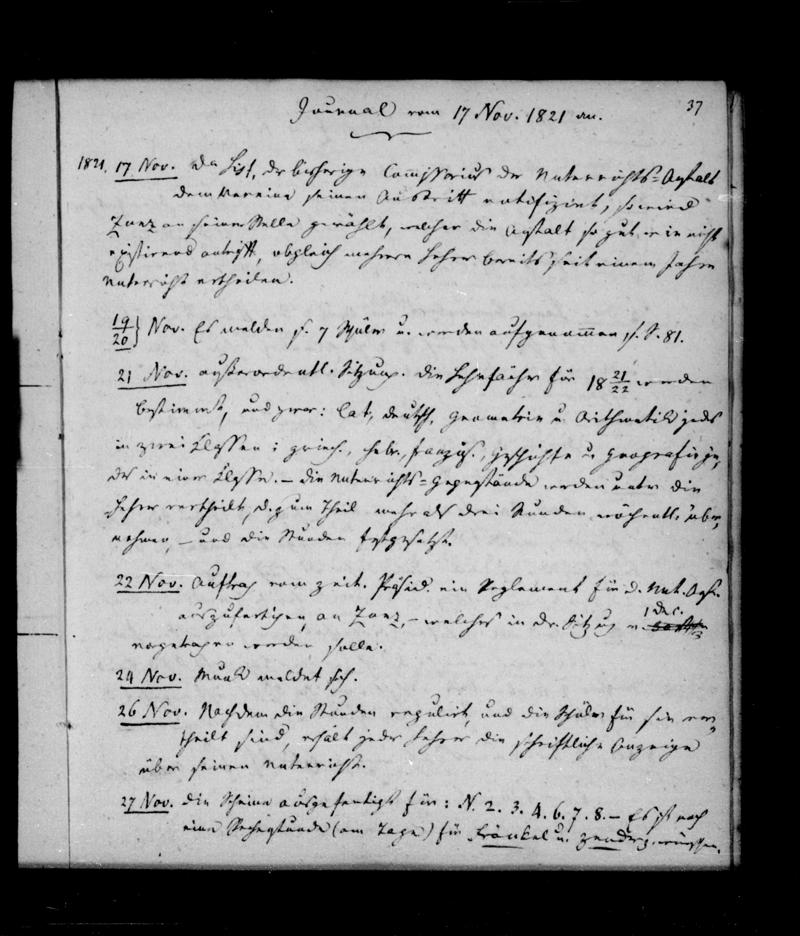 37
Journal vom 17 Nov. 1821 an.
1821. 17 Nov. Da List, der bisherige Commissarius der Unterrichts=Anstalt
dem Vereine seinen Austritt notifizirt, so wird
Zunz an seiner Stelle gewählt, welcher die Anstalt so gut wie nicht
existirend antrifft, obgleich mehrere Lehrer bereits seit einem Jahre
Unterricht ertheilen.
19/20} Nov. Es melden s. 7 Schüler u. werden aufgenommen s. S. 81.
21 Nov. außerordentl. Sitzung. Die Lehrfächer für 18 21/22 werden
bestimmt, und zwar: Lat., deutsch, Geometrie u. Arithmetik jedes
in zwei Klassen; griech., hebr., französ., Geschichte u. Geografie je,
des in einer Klasse. – Die Unterrichts=Gegenstände werden unter die
Lehrer vertheilt, d. zum Theil mehr als drei Stunden wöchentl. über,
nehmen, – und die Stunden festgesetzt.
22 Nov. Auftrag vom zeit. Präsid. ein Reglement für d. Unt. Anst.
auszufertigen, an Zunz, – welches in der Sitzung v. 1 Dec.
vorgetragen werden solle.
24 Nov. Munk meldet sich.
26 Nov. Nachdem die Stunden regulirt, und die Schüler für sie ver,
theilt sind, erhält jeder Lehrer die schriftliche Anzeige
über seinen Unterricht.
27 Nov. Die Scheine ausgefertigt für: N. 2. 3. 4. 6. 7. 8. – Es ist noch
eine Rechestunde (am Tage) für Fränkel u.